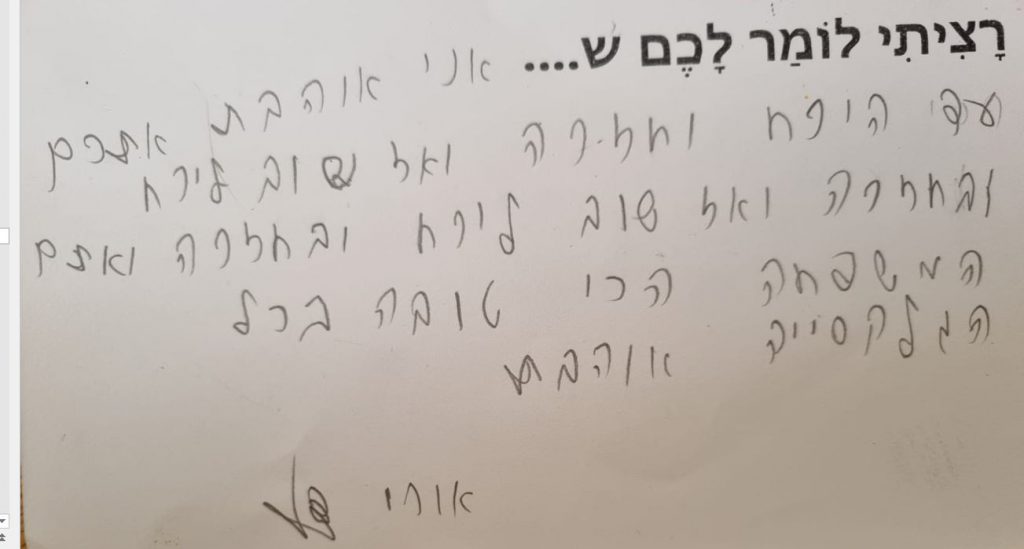 רָצִיתִי לוֹמַר לָכֶם ש.... אני אוהבת אתכם
עד הירח וחזרה ואז שוב לירח
ובחזרה ואז שוב לירח ובחזרה ואתם
המשפחה הכי טובה בכל
הגלקסייה אוהבת
אורי